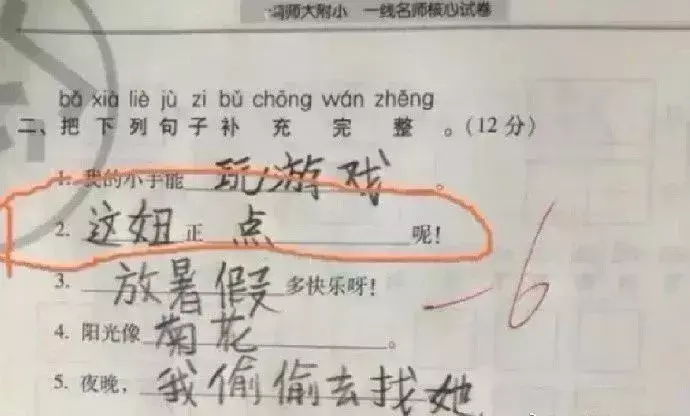 冯师大附小 一线名师核心试卷
bǎ xià liè jù zi bǔ chōng wán zhěng
二、把下列句子补充完整。(12分)
1. 我的小手能玩游戏。
2. 这妞正点呢!
3. 放暑假多快乐呀!
-6
4. 阳光像菊花
5. 夜晚,我偷偷去找她